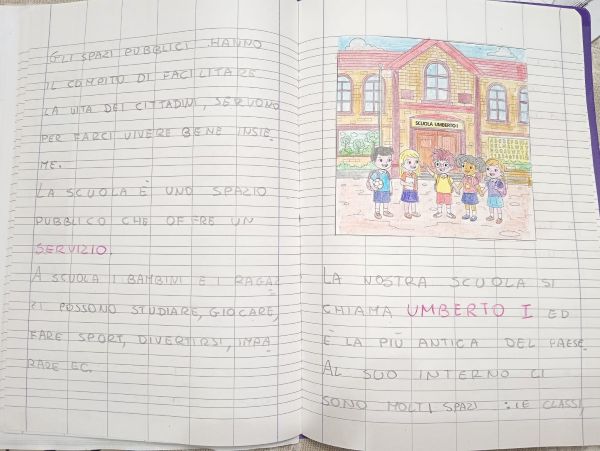 GLI SPAZI PUBBLICI HANNO
IL COMPITO DI FACILITARE
LA VITA DEI CITTADINI, SERVONO
PER FARCI VIVERE BENE INSIE
ME.
LA SCUOLA È UNO SPAZIO
PUBBLICO CHE OFFRE UN
SERVIZIO.
A SCUOLA I BAMBINI E I RAGAZ
ZI POSSONO STUDIARE, GIOCARE,
FARE SPORT, DIVERTIRSI, IMPA
RARE EC.
SCUOLA UMBERTO I
LA NOSTRA SCUOLA SI
CHIAMA UMBERTO I ED
È LA PIÙ ANTICA DEL PAESE.
AL SUO INTERNO CI
SONO MOLTI SPAZI : LE CLASSI,